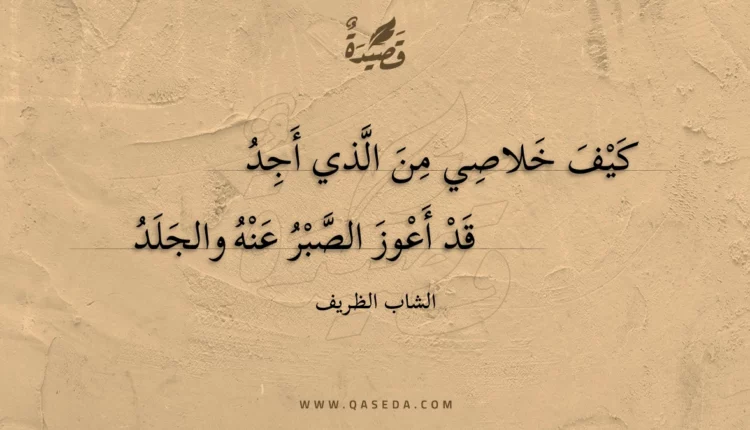 قَصِيدَةٌ
كَيْفَ خَلاصِي مِنَ الَّذي أَجِدُ
قَدْ أَعْوزَ الصَّبْرُ عَنْهُ والجَلَدُ
الشاب الظريف
WWW.QASEDA.COM